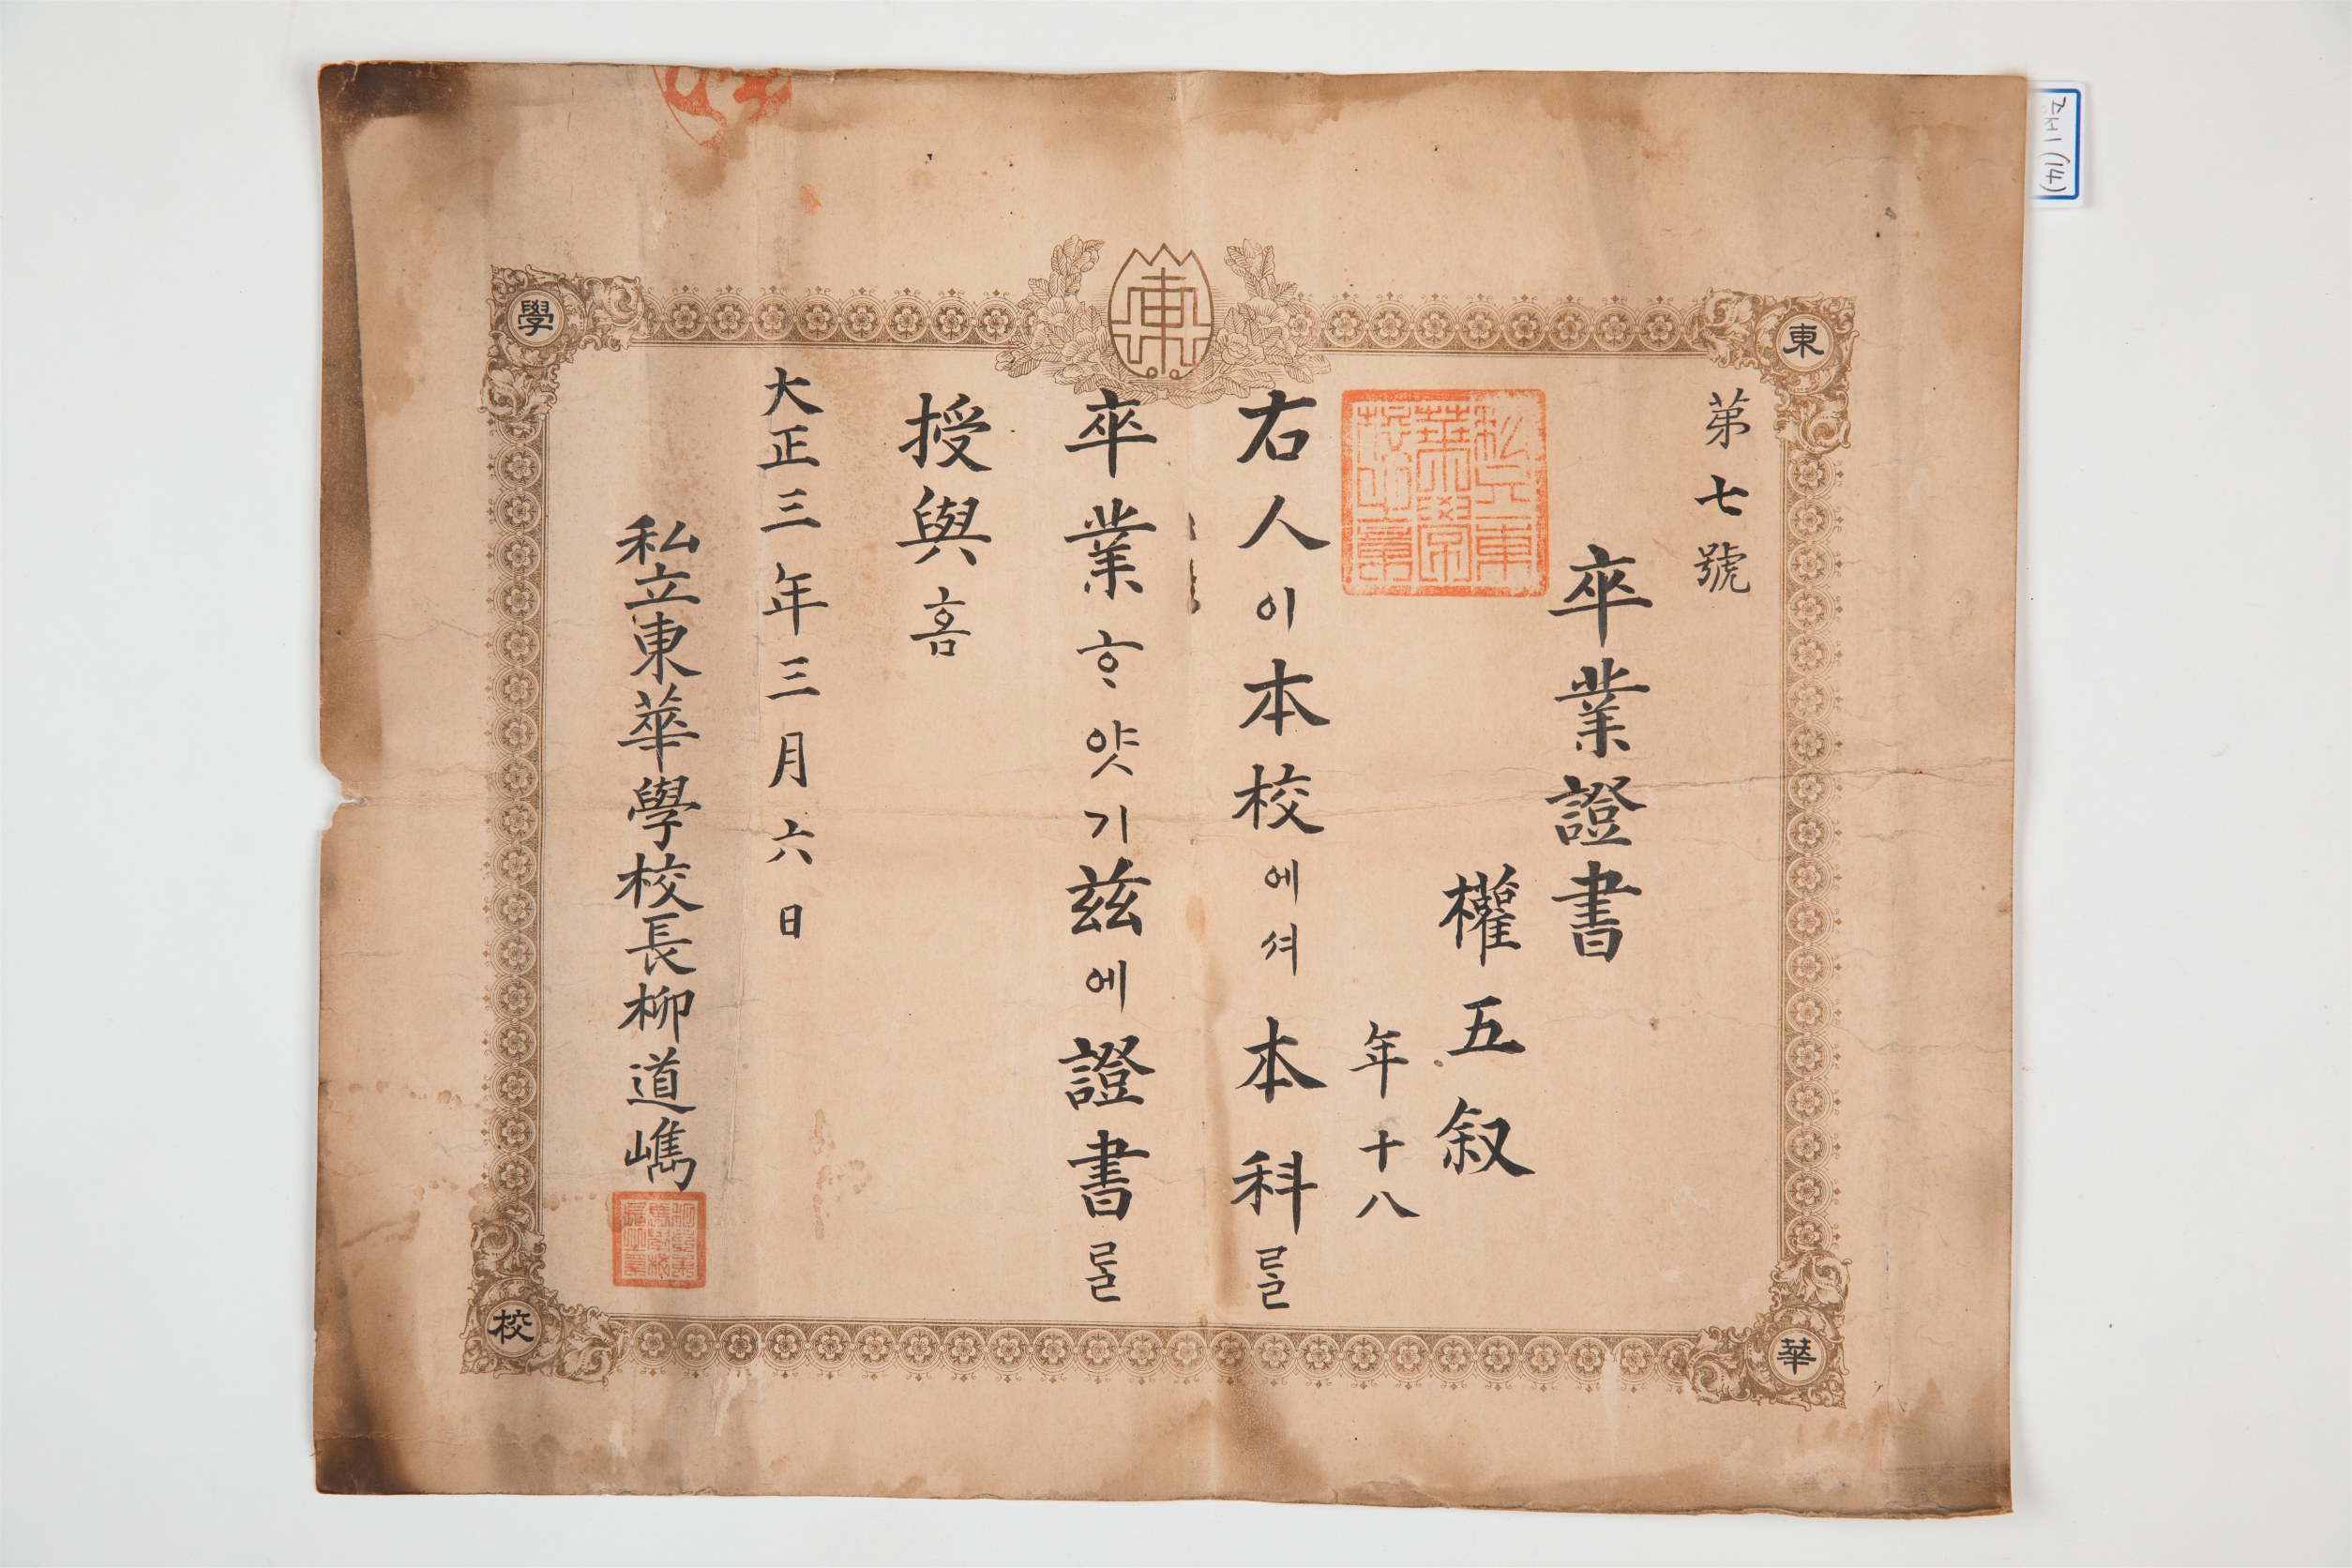 東
華
學
校
東華
第七號
卒業證書
私立東
華學
校之
章
權五叙
年十八
右人이本校에셔本科를
卒業ᄒᆞ얏기玆에證書를
授與홈
大正三年三月六日
私立東華學校長柳道巂
증서1 (14)